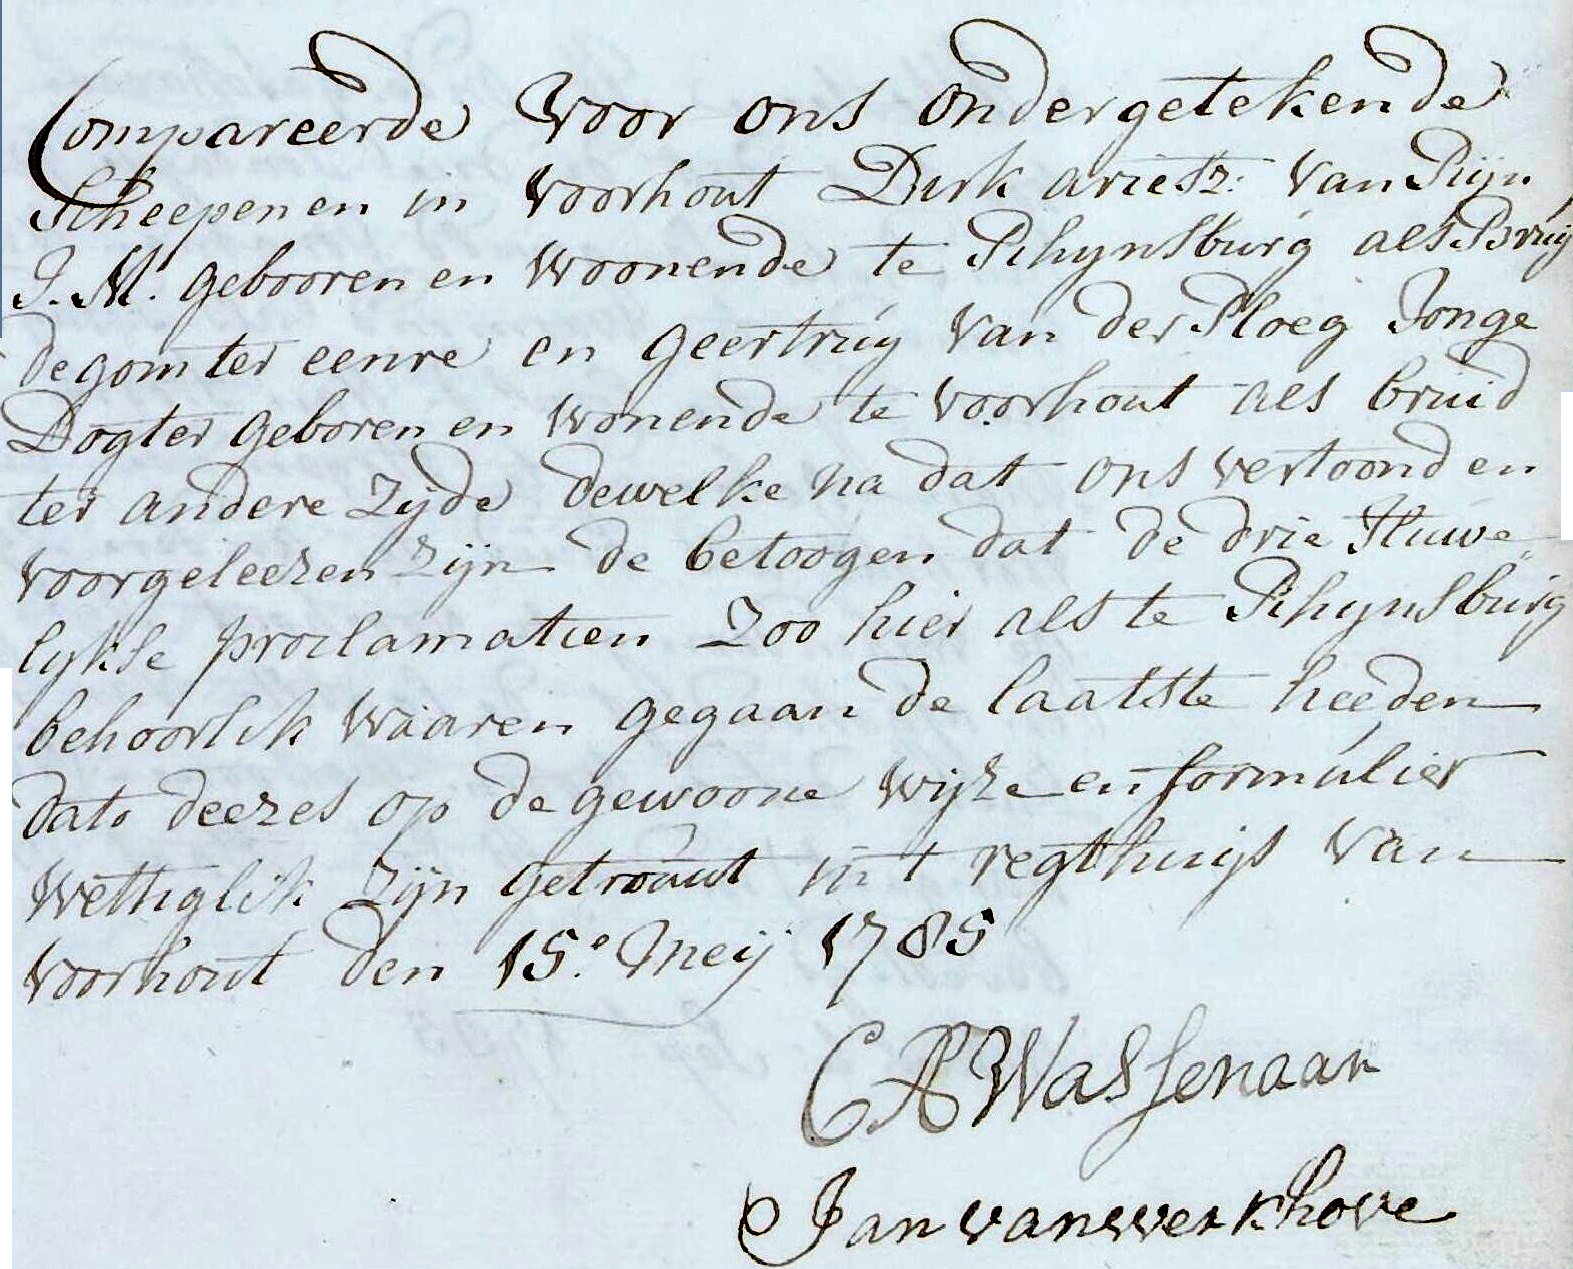 Compareerde voor ons ondergetekende
Scheepenen in voorhout Dirk ariesz: van Rijn
J. M. gebooren en woonende te Rhynsburg als Bruy
degom ter eenre en geertruy van der Ploeg Jonge
Dogter geboren en wonende te voorhout als bruid
ter andere zyde dewelke na dat ons vertoond en
voorgeleezen zijn de betoogen dat de drie Huwe
lykse proclamatien zoo hier als te Rhynsburg
behoorlik waaren gegaan de laatste heeden
dato deezes op de gewoone wijze en formulier
wettiglik zijn getrouwt in t regthuijs van
voorhout den 15e. Meij 1785
C A Wassenaar
Jan van werkhove